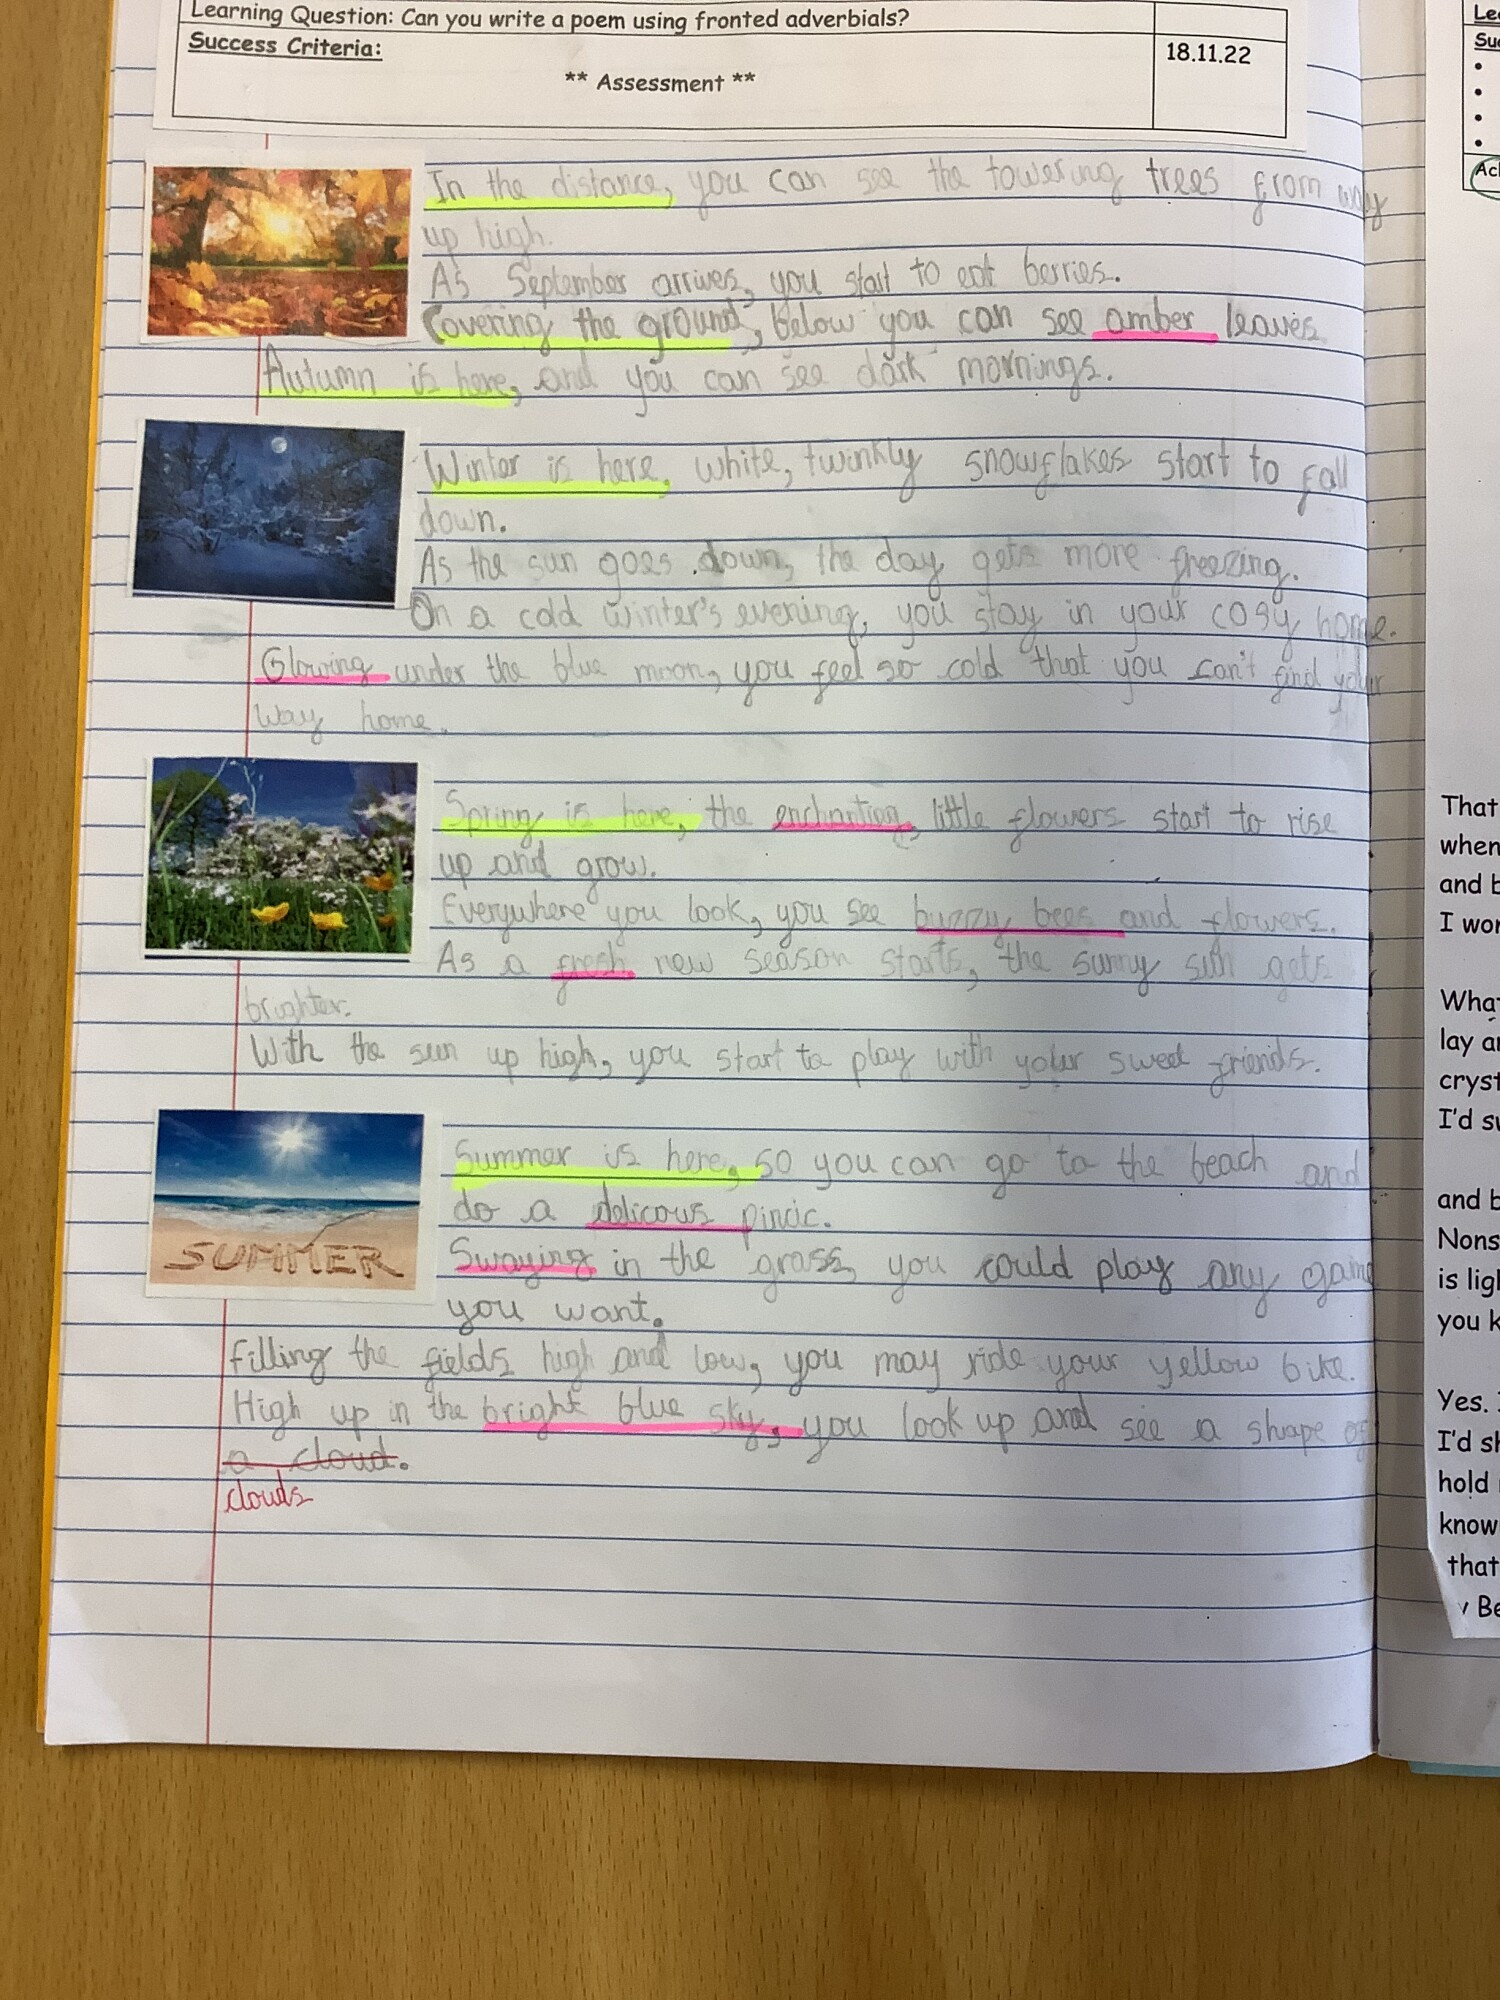 Learning Question: Can you write a poem using fronted adverbials?
Success Criteria:
18.11.22
** Assessment **
In the distance, you can see the towering trees from way
up high.
As September arrives, you start to eat berries.
Covering the ground, below you can see amber leaves.
Autumn is here, and you can see dark mornings.
Winter is here, white, twinkly snowflakes start to fall
down.
As the sun goes down, the day gets more freezing.
On a cold winter's evening, you stay in your cosy home.
Glowing under the blue moon, you feel so cold that you can't find your
way home.
Spring is here, the enchanting, little flowers start to rise
up and grow.
Everywhere you look, you see buzzy bees and flowers.
As a fresh new season starts, the sunny sun gets
brighter.
With the sun up high, you start to play with your sweet friends.
SUMMER
Summer is here, so you can go to the beach and
do a delicous pincic.
Swaying in the grass, you could play any game
you want.
filling the fields high and low, you may ride your yellow bike.
High up in the bright blue sky, you look up and see a shape of
a cloud.
clouds
Su
That
when
and b
I wor
What
lay a
cryst
I'd s
and b
Nons
is lig
you k
Yes.
I'd sh
hold
know
that
Be